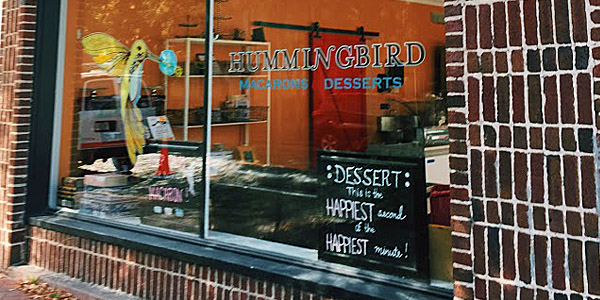 HUMMINGBIRD
MACARONS DESSERTS
MACARON!
:DESSERT:
This is the
HAPPIEST second
of the
HAPPIEST minute!